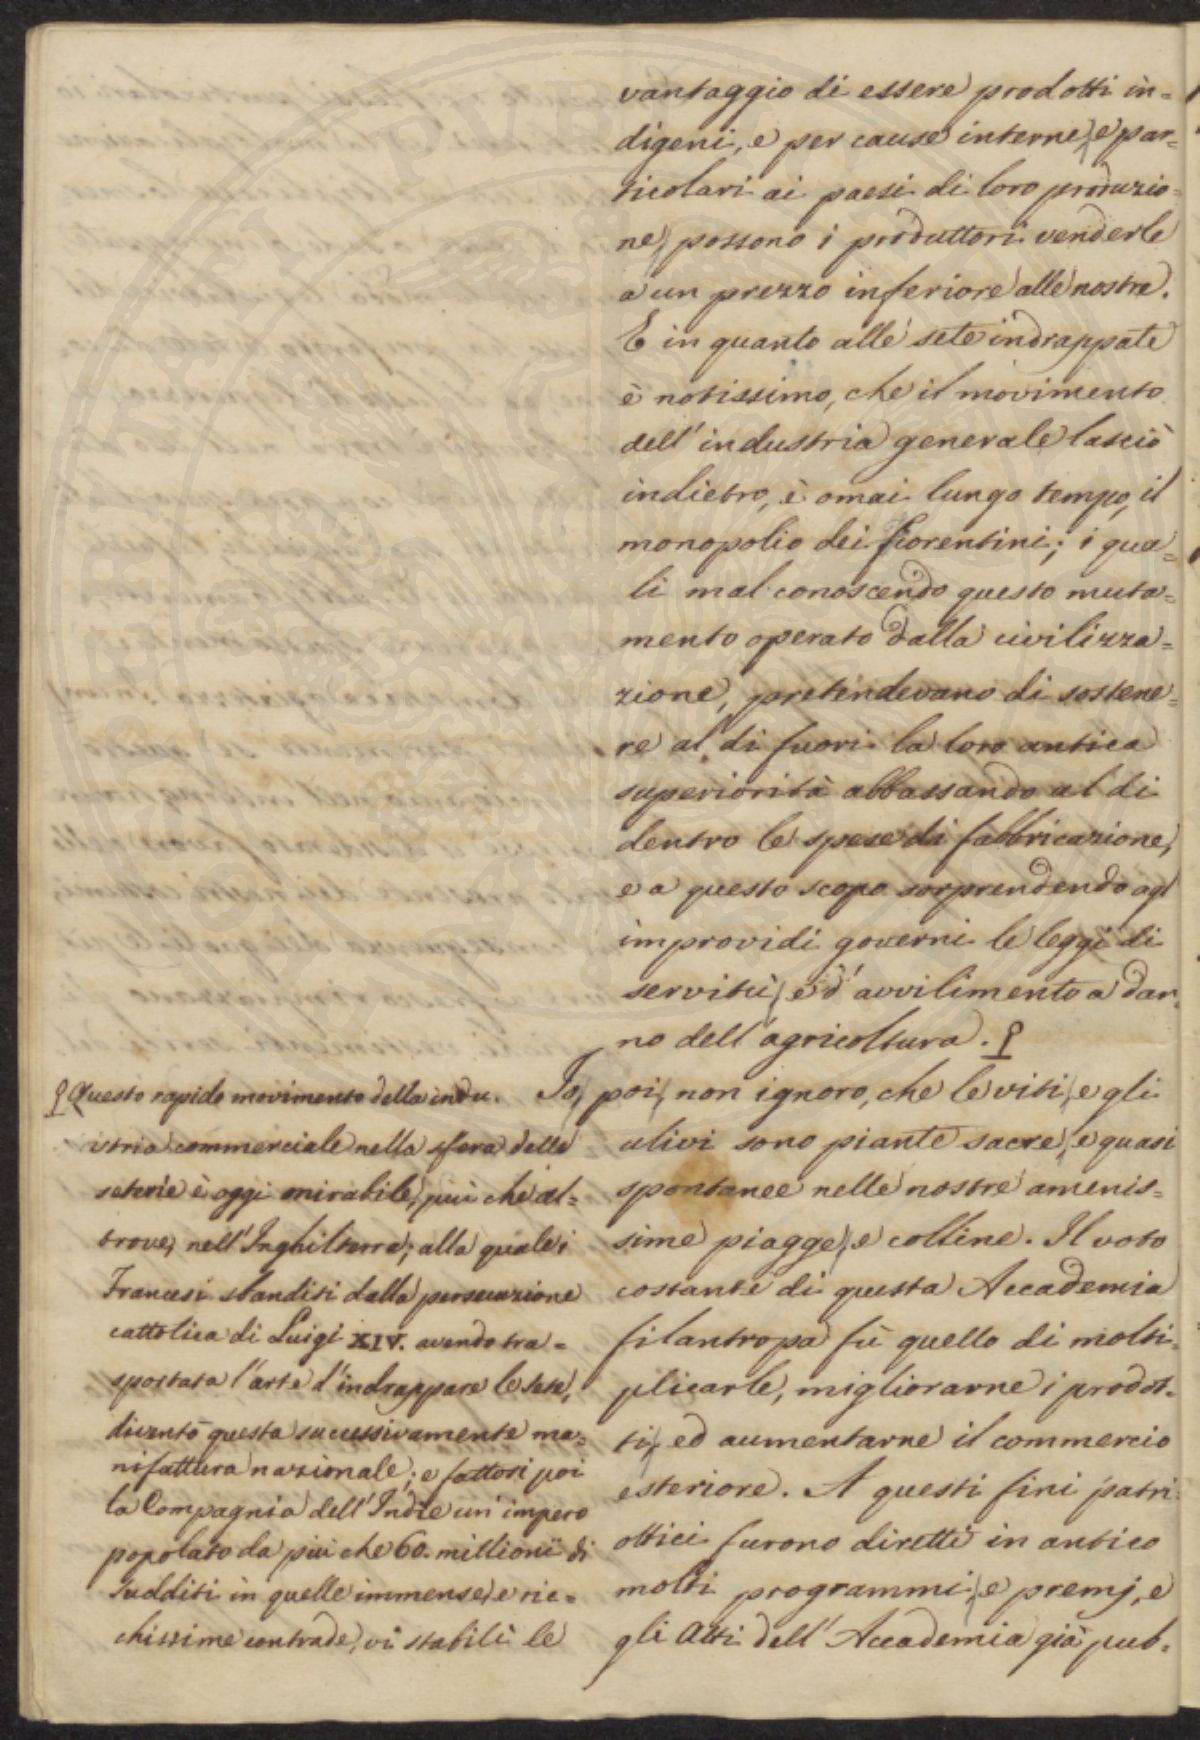 vantaggio di essere prodotti in=
digeni, e per cause interne, e par=
ticolari ai paesi di loro produzio=
ne, possono i produttori venderle
a un prezzo inferiore alle nostre.
E in quanto alle sete indrappate
è notissimo, che il movimento
dell'industria generale lasciò
indietro, è omai lungo tempo, il
monopolio dei Fiorentini; i qua=
li mal conoscendo questo muta=
mento operato dalla civilizza=
zione, pretendevano di sostene=
re al di fuori la loro antica
superiorità abbassando al di
dentro le spese di fabbricazione,
e a questo scopo sorprendendo agl'
improvidi governi le leggi di
servitù, e d'avvilimento a dan=
no dell'agricoltura.
Io, poi, non ignoro, che le viti, e gli
ulivi sono piante sacre, e quasi
spontanee nelle nostre amenis=
sime piagge, e colline. Il voto
costante di questa Accademia
filantropa fù quello di molti=
plicarle, migliorarne i prodot=
ti, ed aumentarne il commercio
esteriore. A questi fini patri=
ottici furono diretti in antico
molti programmi, e premj, e
gli Atti dell'Accademia già pub=
Questo rapido movimento della indu=
stria commerciale nella sfera delle
seterie è oggi mirabile, più che al=
trove, nell'Inghilterra; alla quale i
Francesi sbanditi dalla persecuzione
cattolica di Luigi XIV. avendo tra=
sportata l'arte d'indrappare le sete,
diventò questa successivamente ma=
nifattura nazionale; e fattosi poi
la Compagnia dell'Indie un'impero
popolato da più che 60. millioni di
sudditi in quelle immense, e ric=
chissime contrade, vi stabilì le